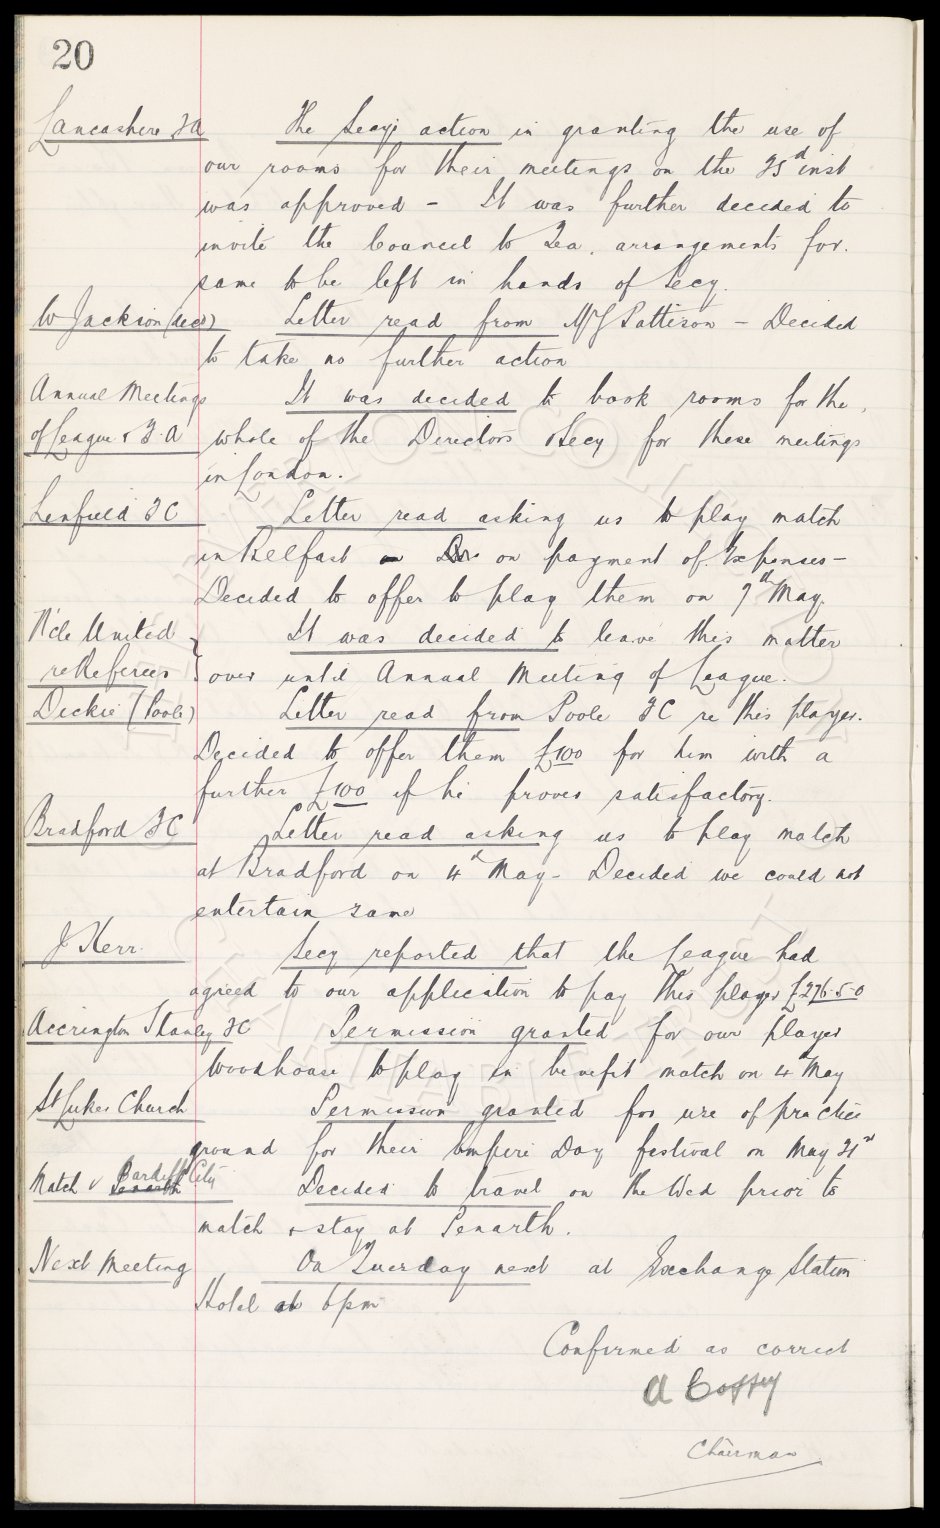 20
Lancashire FA The Secy's action in granting the use of
our rooms for their meetings on the 25th inst
was approved - It was further decided to
invite the Council to Tea, arrangements for
same to be left in hands of Secy.
W Jackson (decd) Letter read from Pattison - Decided
to take no further action
Annual Meetings It was decided to book rooms for the
of League & F.A whole of the Directors & Secy for these meetings
in London.
Linfield FC Letter read asking us to play match
in Belfast on payment of Expenses -
Decided to offer to play them on 9th May.
N'cle United It was decided to leave this matter
re Referees over until Annual Meeting of League.
Dickie (Poole) Letter read from Poole FC re this player.
Decided to offer them £100 for him with a
further £100 if he proves satisfactory.
Bradford FC Letter read asking us to play match
at Bradford on 4th May - Decided we could not
entertain same
J Kerr. Secy reported that the League had
agreed to our application to pay this player £276.5.0
Accrington Stanley FC Permission granted for our player
Woodhouse to play in benefit match on 4th May
St Lukes Church Permission granted for use of practice
ground for their Empire Day festival on May 21st
Match v Cardiff City Decided to travel on the Wed prior to
match & stay at Penarth.
Next Meeting On Tuesday next at Exchange Station
Hotel at 6pm
Confirmed as correct
Chairman